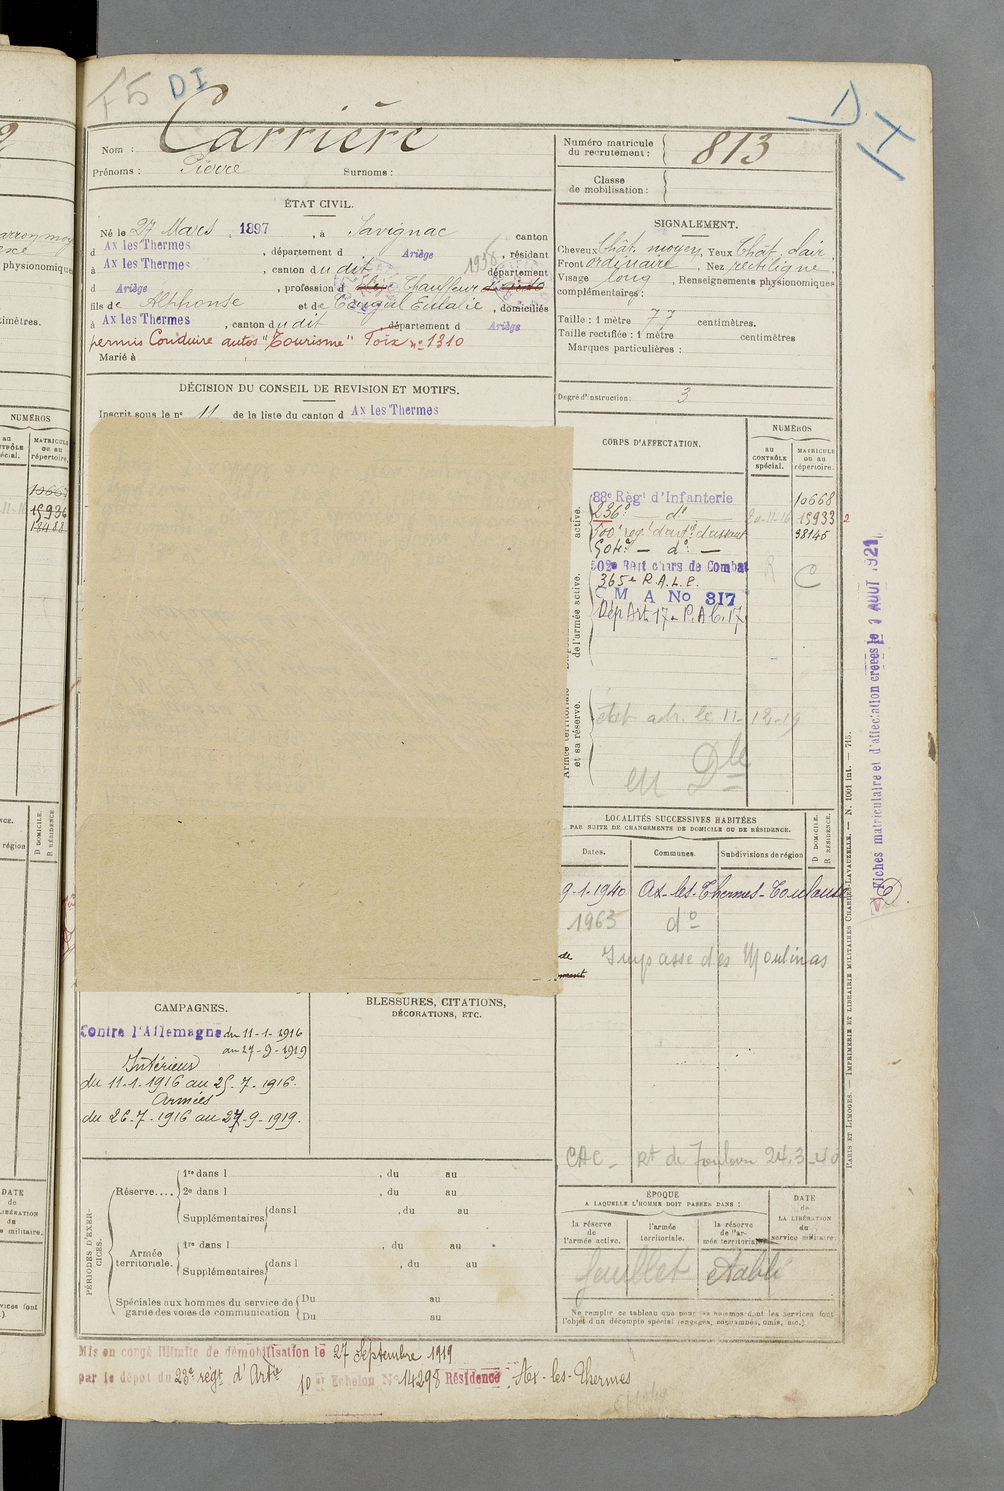 F5 DI
D. I
Nom : Carrière
Prénoms : Pierre Surnoms :
Numéro matricule du recrutement : 813
Classe de mobilisation :
ÉTAT CIVIL.
Né le 27 Mars 1897, à Savignac canton
d Ax les Thermes, département d Ariège, résidant
à Ax les Thermes, canton du dit 1938 département
d Ariège, profession d Chauffeur d'auto
fils de Alphonse et de Eulalie, domiciliés
à Ax les Thermes, canton du dit, département d Ariège
permis Conduire autos "Tourisme" Foix n° 1310
Marié à
SIGNALEMENT.
Cheveux Chât. moyen, Yeux Chât. clair
Front ordinaire, Nez rectiligne
Visage long, Renseignements physionomiques
complémentaires :
Taille : 1 mètre 77 centimètres.
Taille rectifiée : 1 mètre centimètres
Marques particulières :
Degré d'instruction : 3
DÉCISION DU CONSEIL DE REVISION ET MOTIFS.
Inscrit sous le n° 11 de la liste du canton d Ax les Thermes
CORPS D'AFFECTATION.
NUMÉROS
au CONTRÔLE spécial.
MATRICULE ou au répertoire.
active.
de l'armée active.
et sa réserve.
88e Règt d'Infanterie 10668
236e do 20-11-16 15933 2
500e reg.t d'art.ie d'assaut 38145
504e - do -
502e Régt chars de Combat C
365e R.A.L.P.
C M A No 317
Dép Art. 17 - P.A.C. 17
adr. le 11-12-19
en Dle
LOCALITÉS SUCCESSIVES HABITÉES
PAR SUITE DE CHANGEMENTS DE DOMICILE OU DE RÉSIDENCE.
Dates. Communes. Subdivisions de région D DOMICILE. R RÉSIDENCE.
9-1-1940 Ax-les-Thermes - Toulouse
1963 do
Impasse des Moulinas
CAC - Rt de 24.3-40
CAMPAGNES.
Contre l'Allemagne du 11-1-1916
au 27-9-1919
Intérieur
du 11-1-1916 au 25-7-1916.
Armées
du 26-7-1916 au 27-9-1919.
BLESSURES, CITATIONS,
DÉCORATIONS, ETC.
PÉRIODES D'EXERCICES.
Réserve....
1re dans l , du au
2e dans l , du au
Supplémentaires dans l , du au
Armée territoriale.
1re dans l , du au
Supplémentaires dans l , du au
Spéciales aux hommes du service de garde des voies de communication
Du au
Du au
ÉPOQUE
A LAQUELLE L'HOMME DOIT PASSER DANS :
la réserve de l'armée active.
l'armée territoriale.
la réserve de l'armée territoriale.
DATE de LA LIBÉRATION du service militaire
feuillet établi
Ne remplir ce tableau que pour les hommes dont les services font
l'objet d'un décompte spécial (engagés, ajournés, omis, etc.)
Mis en congé illimité de démobilisation le 27 Septembre 1919
par le dépôt du 23e régt d'Artie 10e Echelon N° 14298 Résidence Ax-les-Thermes
Fiches matriculaire et d'affectation créées le AOUT 1921
PARIS ET LIMOGES. — IMPRIMERIE ET LIBRAIRIE MILITAIRES CHARLES-LAVAUZELLE. — N. 1001 int. — 715.
physionomiques
centimètres.
NUMÉROS
MATRICULE ou au répertoire.
10667
15936
région
D DOMICILE.
R RÉSIDENCE.
DATE de LIBÉRATION du militaire.